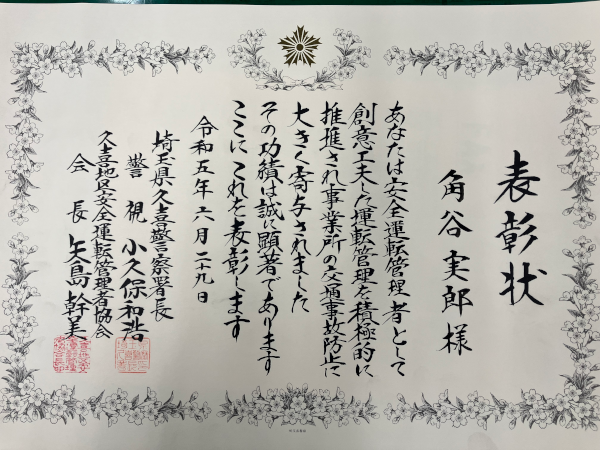 表彰状
角谷実郎様
あなたは安全運転管理者として
創意工夫した運転管理を積極的に
推進され事業所の交通事故防止に
大きく寄与されました
その功績は誠に顕著であります
ここにこれを表彰します
令和五年六月二十九日
埼玉県久喜警察署長
警視 小久保和浩
久喜地区安全運転管理者協会
会長 矢島幹美